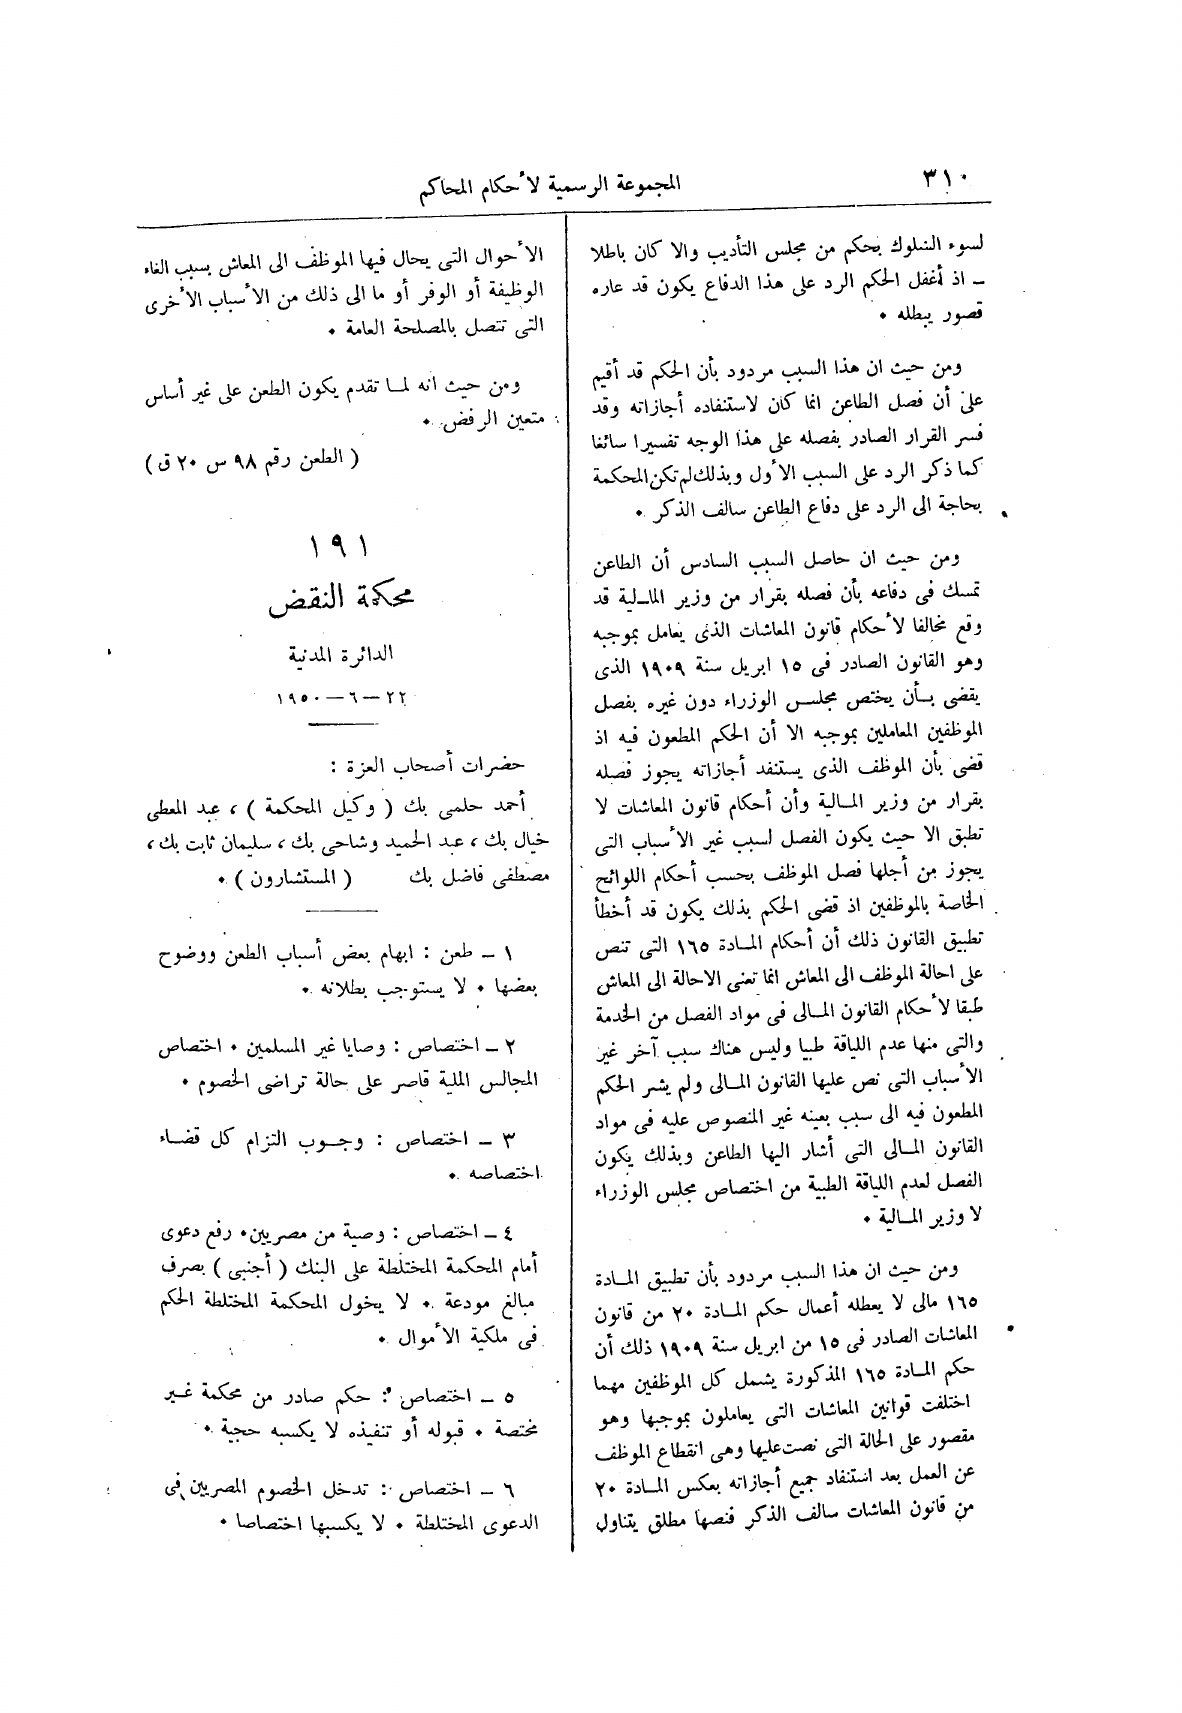 ٣١٠
المجموعة الرسمية لأحكام المحاكم
لسوء السلوك بحكم من مجلس التأديب والا كان باطلا
ـ اذ أغفل الحكم الرد على هذا الدفاع يكون قد عاره
قصور يبطله ٠
ومن حيث ان هذا السبب مردود بأن الحكم قد أقيم
على أن فصل الطاعن انما كان لاستنفاده أجازاته وقد
فسر القرار الصادر بفصله على هذا الوجه تفسيرا سائغا
كما ذكر الرد على السبب الأول وبذلك لم تكن المحكمة
بحاجة الى الرد على دفاع الطاعن سالف الذكر ٠
ومن حيث ان حاصل السبب السادس أن الطاعن
تمسك فى دفاعه بأن فصله بقرار من وزير المالية قد
وقع مخالفا لأحكام قانون المعاشات الذى يعامل بموجبه
وهو القانون الصادر فى ١٥ ابريل سنة ١٩٠٩ الذى
يقضى بأن يختص مجلس الوزراء دون غيره بفصل
الموظفين المعاملين بموجبه الا أن الحكم المطعون فيه اذ
قضى بأن الموظف الذى يستنفد أجازاته يجوز فصله
بقرار من وزير المالية وأن أحكام قانون المعاشات لا
تطبق الا حيث يكون الفصل لسبب غير الأسباب التى
يجوز من أجلها فصل الموظف بحسب أحكام اللوائح
الخاصة بالموظفين اذ قضى الحكم بذلك يكون قد أخطأ
تطبيق القانون ذلك أن أحكام المادة ١٦٥ التى تنص
على احالة الموظف الى المعاش انما تعنى الاحالة الى المعاش
طبقا لأحكام القانون المالى فى مواد الفصل من الخدمة
والتى منها عدم اللياقة طبيا وليس هناك سبب آخر غير
الأسباب التى نص عليها القانون المالى ولم يشر الحكم
المطعون فيه الى سبب بعينه غير المنصوص عليه فى مواد
القانون المالى التى أشار اليها الطاعن وبذلك يكون
الفصل لعدم اللياقة الطبية من اختصاص مجلس الوزراء
لا وزير المالية ٠
ومن حيث ان هذا السبب مردود بأن تطبيق المادة
١٦٥ مالى لا يعطله أعمال حكم المادة ٢٠ من قانون
المعاشات الصادر فى ١٥ من ابريل سنة ١٩٠٩ ذلك أن
حكم المادة ١٦٥ المذكورة يشمل كل الموظفين مهما
اختلفت قوانين المعاشات التى يعاملون بموجبها وهو
مقصور على الحالة التى نصت عليها وهى انقطاع الموظف
عن العمل بعد استنفاد جميع أجازاته بعكس المادة ٢٠
من قانون المعاشات سالف الذكر فنصها مطلق يتناول
الأحوال التى يحال فيها الموظف الى المعاش بسبب الغاء
الوظيفة أو الوفر أو ما الى ذلك من الأسباب الأخرى
التى تتصل بالمصلحة العامة ٠
ومن حيث انه لما تقدم يكون الطعن على غير أساس
متعين الرفض ٠
( الطعن رقم ٩٨ س ٢٠ ق )
١٩١
محكمة النقض
الدائرة المدنية
٢٢ – ٦ – ١٩٥٠
حضرات أصحاب العزة :
أحمد حلمى بك ( وكيل المحكمة ) ، عبد المعطى
خيال بك ، عبد الحميد وشاحى بك ، سليمان ثابت بك ،
مصطفى فاضل بك ( المستشارون ) ٠
١ ـ طعن : ابهام بعض أسباب الطعن ووضوح
بعضها ٠ لا يستوجب بطلانه ٠
٢ ـ اختصاص : وصايا غير المسلمين ٠ اختصاص
المجالس الملية قاصر على حالة تراضى الخصوم ٠
٣ ـ اختصاص : وجوب التزام كل قضاء
اختصاصه ٠
٤ ـ اختصاص : وصية من مصريين ٠ رفع دعوى
أمام المحكمة المختلطة على البنك ( أجنبى ) بصرف
مبالغ مودعة ٠ لا يخول المحكمة المختلطة الحكم
فى ملكية الأموال ٠
٥ ـ اختصاص : حكم صادر من محكمة غير
مختصة ٠ قبوله أو تنفيذه لا يكسبه حجية ٠
٦ ـ اختصاص : تدخل الخصوم المصريين فى
الدعوى المختلطة ٠ لا يكسبها اختصاصا ٠